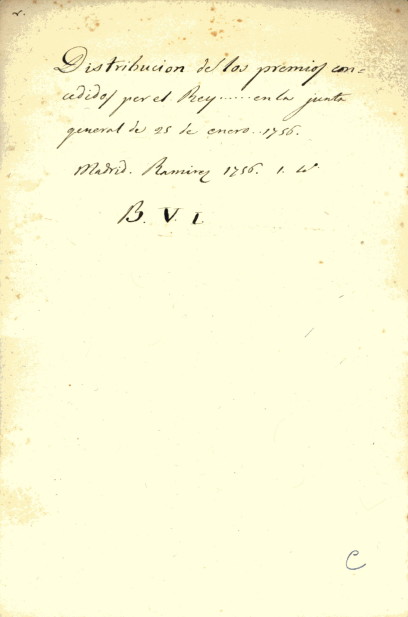 Distribucion de los premios con=
cedidos por el Rey......en la junta
general de 25 de enero..1756.
Madrid. Ramirez 1756. 1.
B. V. I
C